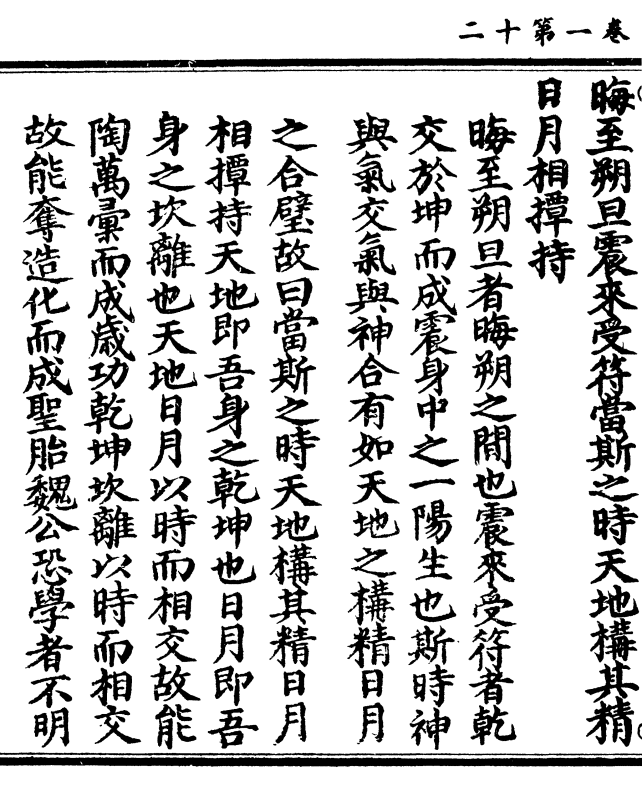 卷一第十二
晦至朔旦震來受符當斯之時天地構其精
日月相撢持
晦至朔旦者晦朔之間也震來受符者乾
交於坤而成震身中之一陽生也斯時神
與氣交氣與神合有如天地之構精日月
之合璧故曰當斯之時天地構其精日月
相撢持天地即吾身之乾坤也日月即吾
身之坎離也天地日月以時而相交故能
陶萬彙而成歲功乾坤坎離以時而相交
故能奪造化而成聖胎魏公恐學者不明